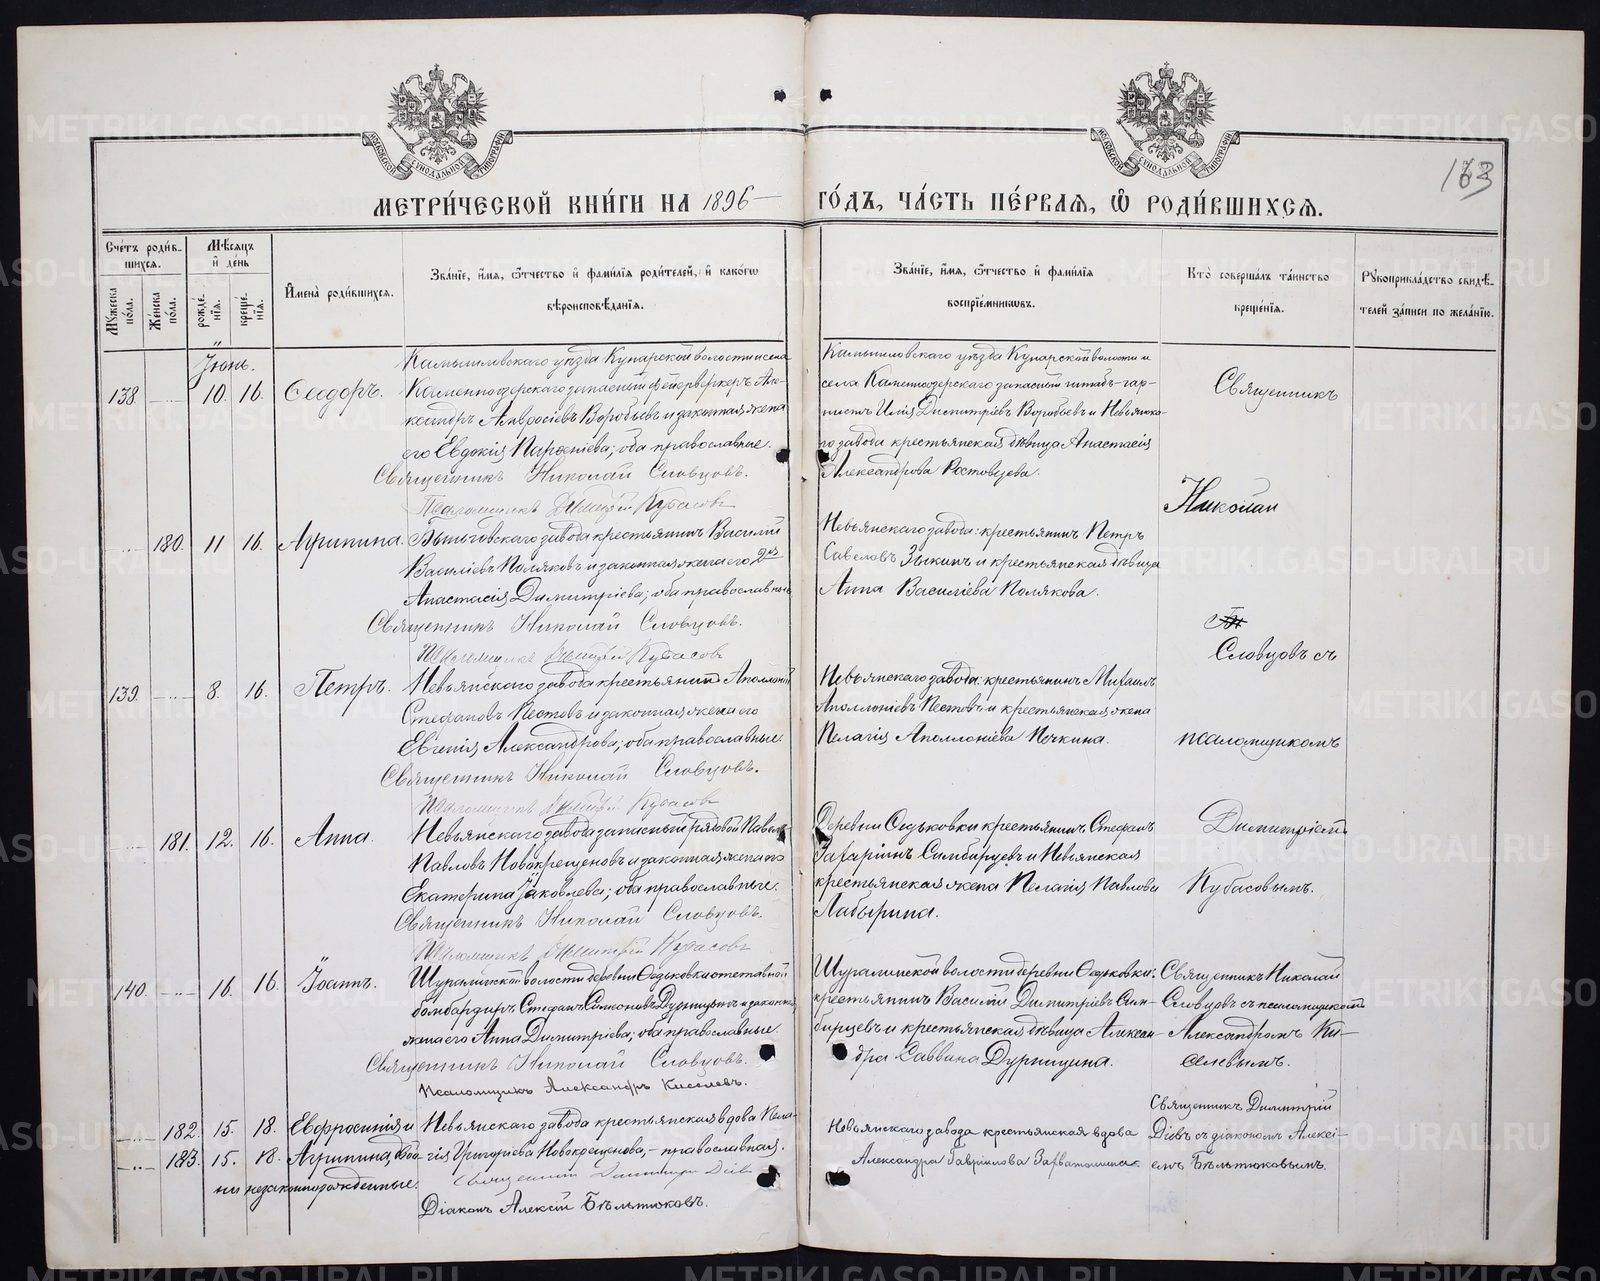 163
МЕТРИ́ЧЕСКОЙ КНИ́ГИ НА 1896 ГО́ДЪ, ЧА́СТЬ ПЕ́РВАѦ, Ѡ҆ РОДИ́ВШИХСѦ.
Сче́тъ роди́в-
шихсѧ.
Мꙋжеска по́ла.
Же́нска по́ла.
Мѣ́сѧцъ и҆ де́нь
рожде́-
нїѧ.
креще́-
нїѧ.
И҆мена̀ роди́вшихсѧ.
Зва́нїе, и҆́мѧ, ѻ҆́тчество и҆ фами́лїѧ роди́телей, и҆ како́гѡ
вѣроисповѣ́данїѧ.
Зва́нїе, и҆́мѧ, ѻ҆́тчество и҆ фами́лїѧ
воспрїе́мникѡвъ.
Кто̀ соверша́лъ та́инство
креще́нїѧ.
Рꙋкоприкла́дство свидѣ́-
телей за́писи по жела́нїю.
Іюнь.
138. 10. 16. Ѳеодоръ.
Камышловскаго уѣзда Кунарской волости и села
Каменноозерскаго запасный фейерверкеръ Але-
ксандръ Амвросіевъ Воробьевъ и законная жена
его Евдокія Парѳеніева; оба православные.
Священникъ Николай Словцовъ.
Псаломщикъ Димитрій Кубасовъ
Камышловскаго уѣзда Кунарской волости и
села Каменноозерскаго запасный
Илія Димитріевъ Воробьевъ и Невьянска-
го завода крестьянская дѣвица Анастасія
Александрова Ростовцева.
Священникъ
Николай
180. 11 16. Агрипина.
завода крестьянинъ Василій
Василіевъ Поляковъ и законная жена его
Анастасія Димитріева; оба православные
Священникъ Николай Словцовъ.
Псаломщикъ Димитрій Кубасовъ
Невьянскаго завода: крестьянинъ Петръ
Савеловъ Зыкинъ и крестьянская дѣвица
Анна Василіева Полякова.
Словцовъ съ
139. 8. 16. Петръ.
Невьянскаго завода крестьянинъ Аполлоній
Стефановъ Пестовъ и законная жена его
Евгенія Александрова; оба православные.
Священникъ Николай Словцовъ.
Псаломщикъ Димитрій Кубасовъ
Невьянскаго завода: крестьянинъ Михаилъ
Аполлоніевъ Пестовъ и крестьянская жена
Пелагія Аполлоніева Пичкина.
псаломщикомъ
181. 12. 16. Анна.
Невьянскаго завода запасный рядовой Павелъ
Павловъ Новокрещеновъ и законная жена его
Екатерина Іаковлева; оба православные.
Священникъ Николай Словцовъ.
Псаломщикъ Димитрій Кубасовъ
Деревни Ѳедьковки крестьянинъ Стефанъ
Захаріинъ Симбирцевъ и Невьянская
крестьянская жена Пелагія Павлова
Лабырина.
Димитріемъ
Кубасовымъ.
140. 16. 16. Іоаннъ.
Шуралинской волости деревни Ѳедьковки отставной
бомбардиръ Стефанъ Дурницынъ и законная
жена его Анна Димитріева; оба православные.
Священникъ Николай Словцовъ.
Псаломщикъ Александръ Киселевъ.
Шуралинской волости деревни Ѳедьковки:
крестьянинъ Василій Димитріевъ Сим-
бирцевъ и крестьянская дѣвица Алексан-
дра Саввина Дурницина.
Священникъ Николай
Словцовъ съ псаломщикомъ
Александромъ Ки-
селевымъ.
182. 15. 18. Евфросинія и
183. 15. 18. Агрипина, обѣ
незаконнорожденные.
Невьянскаго завода крестьянская вдова Пела-
гія Григоріева Новокрещенова, - православная.
Священникъ Димитрій Діевъ
Діаконъ Алексій Бѣльтюковъ.
Невьянскаго завода крестьянская вдова
Александра Гавріилова Захваткина.
Священникъ Димитрій
Діевъ съ діакономъ Алексі-
емъ Бѣльтюковымъ.